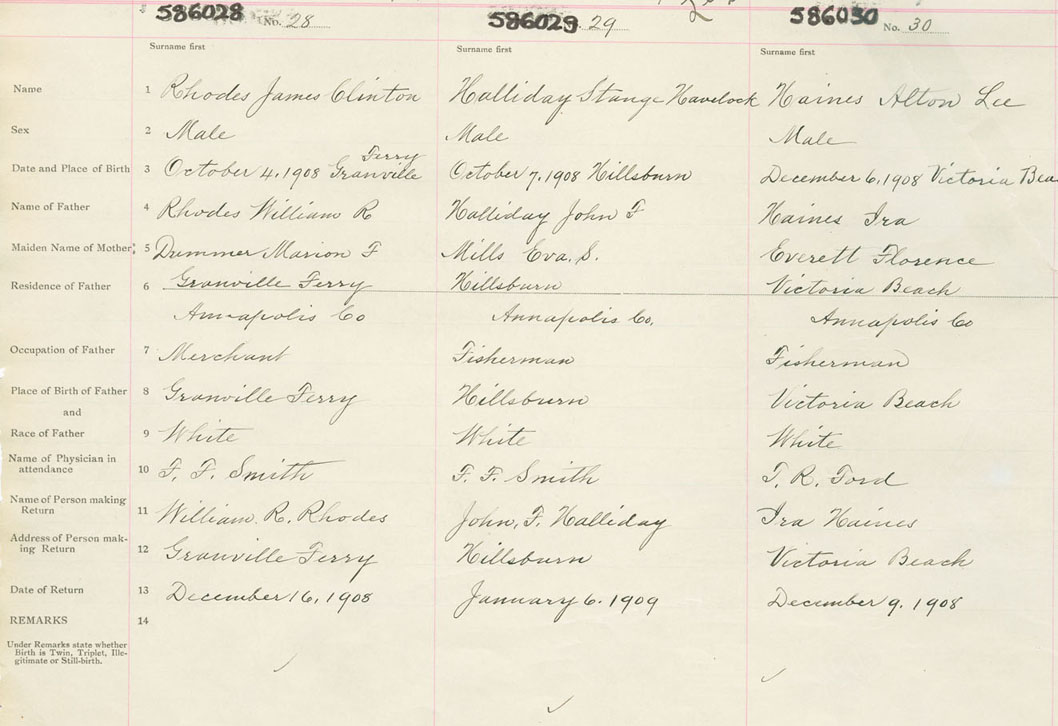 586028 No. 28 586029 29 586030 No. 30
Surname first Surname first Surname first
Name 1 Rhodes James Clinton Halliday Stange Havelock Haines Alton Lee
Sex 2 Male Male Male
Ferry
Date and Place of Birth 3 October 4, 1908 Granville October 7, 1908 Hillsburn December 6, 1908 Victoria Bea
Name of Father 4 Rhodes William R Halliday John F Haines Ira
Maiden Name of Mother 5 Drummer Marion F Mills Eva. S. Everett Florence
Residence of Father 6 Granville Ferry Hillsburn Victoria Beach
Annapolis Co Annapolis Co. Annapolis Co
Occupation of Father 7 Merchant Fisherman Fisherman
Place of Birth of Father 8 Granville Ferry Hillsburn Victoria Beach
and
Race of Father 9 White White White
Name of Physician in
attendance 10 F. F. Smith F. F. Smith T. R. Ford
Name of Person making
Return 11 William. R. Rhodes John, F. Halliday Ira Haines
Address of Person mak-
ing Return 12 Granville Ferry Hillsburn Victoria Beach
Date of Return 13 December 16, 1908 January 6. 1909 December 9. 1908
REMARKS 14
Under Remarks state whether
Birth is Twin, Triplet, Ille-
gitimate or Still-birth.